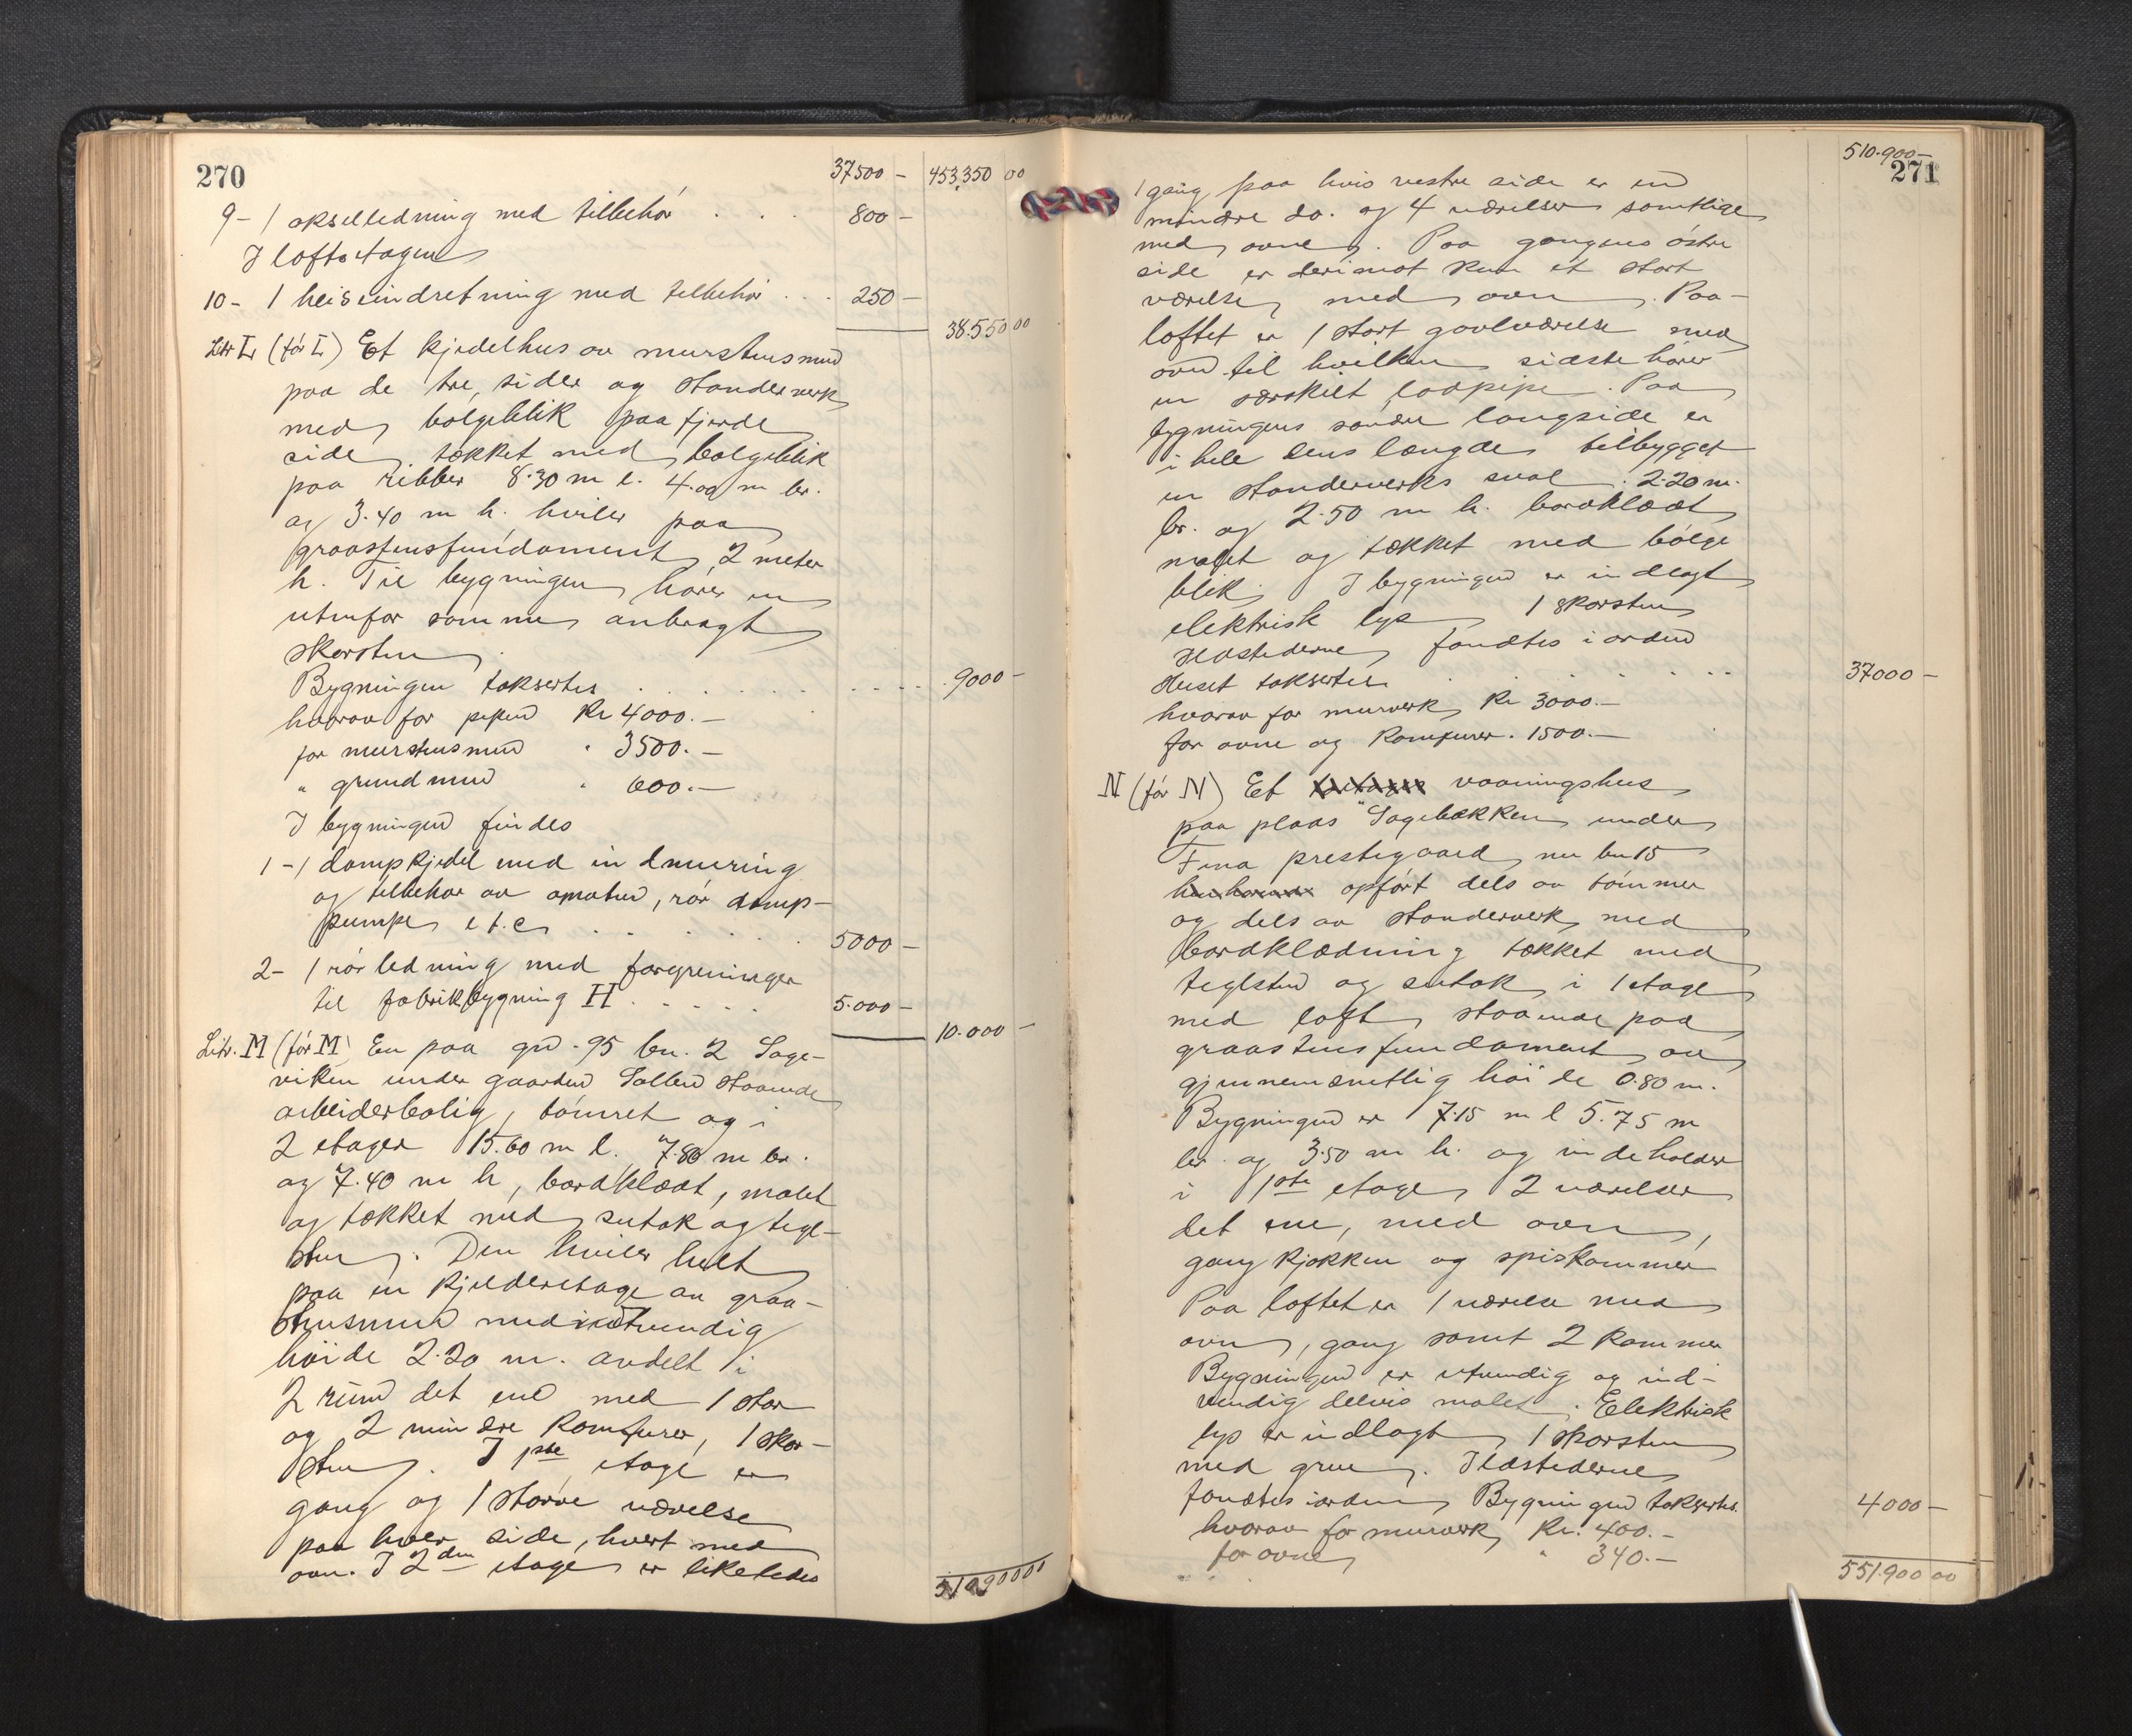 270
37500 - 453,350 00
9- 1 akselledning med tilbehör . . . 800 -
I loftsetagen
10- 1 heisindretning med tilbehör . . . 250 -
38.550 00
Litr L (för L) Et kjedelhus av murstensmur
paa de tre, sider og standerverk
med bølgeblik paa fjerde
side, tækket med bølgeblik
paa ribber 8.30 m l. 4.00 m br.
og 3.40 m h. hviler paa
graastensfundament, 2 meter
h. Til bygningen hører en
utenfor samme anbragt
skorsten.
Bygningen taksertes . . . . 9000 -
hvorav for pipen Kr 4000.-
for murstensmur " 3500.-
" grundmur " 600.-
I bygningen findes
1-1 dampkjedel med indmuring
og tilbehør av armatur, rör damp-
pumpe e t.c. . . . . 5000 -
2- 1 rörledning med forgreninger
til fabrikbygning H . . . . 5.000 -
10.000 -
Litr. M (för M) En paa gnr. 95 bn. 2 Sage-
viken under gaarden Sallen staaende
arbeiderbolig, tömret og i
2 etager 15.60 m l. 7.80 m br.
og 7.40 m h, bordklædt, malet
og tækket med sutak og tegl-
sten. Den hviler helt
paa en kjelderetage av graa-
stensmur med indvendig
höide 2.20 m. avdelt i
2 rum det ene med 1 stor
og 2 mindre komfurer, 1 skor-
sten. I 1ste etage er
gang og 1 större værelse
paa hver side, hvert med
ovn. I 2den etage er likeledes
510900 00
510.900-
271
1 gang paa hvis vestre side er en
mindre do. og 4 værelser samtlige
med ovne. Paa gangens östre
side er derimot kun et stort
værelse med ovn. Paa
loftet er 1 stort gavlværelse med
ovn til hvilken sidste hører
en særskilt pipe. Paa
bygningens söndre langside er
i hele dens længde tilbygget
en standerverks sval 2.20 m.
br. og 2.50 m h. bordklædt,
malet og tækket med bölge
blik. I bygningen er indlagt
elektrisk lys 1 skorsten
Ildstederne fandtes i orden
Huset taksertes . . . . . 37000 -
hvorav for murverk Kr 3000.-
for ovne og komfurer. 1500.-
N (för N) Et vaaningshus
paa plads "Sagebakken" under
Fana prestegaard, nu bn 15
opført dels av tömmer
og dels av standerverk med
bordklædning tækket med
teglsten og sutak i 1 etage
med loft, staaende paa
graastensfundament av
gjennemsnitlig höide 0.80 m.
Bygningen er 7.15 m l 5.75 m
br. og 3.50 m h. og indeholder
i 1ste etage 2 værelser
det ene, med ovn,
gang kjøkken og spiskammer
Paa loftet er 1 værelse med
ovn, gang samt 2 kammer
Bygningen er utvendig og ind-
vendig delvis malet. Elektrisk
lys er indlagt, 1 skorsten
med grue. Ildstederne
fandtes iorden, Bygningen taksertes. 4000 -
hvorav for murverk, Kr. 400.-
for ovne, " 340.-
551.900 00